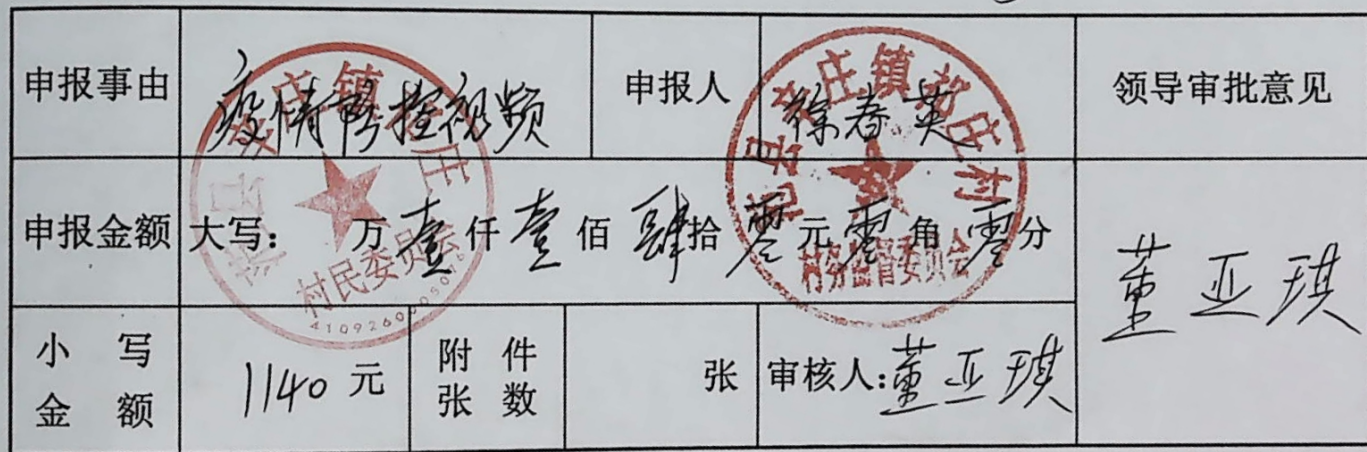 申报事由 疫情防控视频 申报人 徐春英 领导审批意见
申报金额 大写： 万壹仟壹佰肆拾零元零角零分
董亚琪
小写金额 1140元 附件张数 张 审核人:董亚琪
村民委员会
村务监督委员会